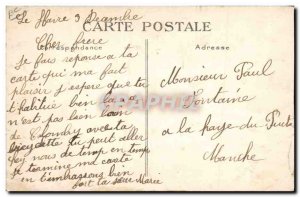 Le Havre 3 Décembre
CARTE POSTALE
Correspondance
Adresse
Cher frère
Je fais reponse a ta
carte qui ma fait
plaisir j espere que tu
t habitue bien la
n'est pas bien loin
de avec ta
bicyclette tu peut aller
chez nous de temp en temp
Je termine ma carte
en t'embrassant bien
fort ta sœur Marie
Monsieur Paul
Fontaine
a la haye du Puits
Manche